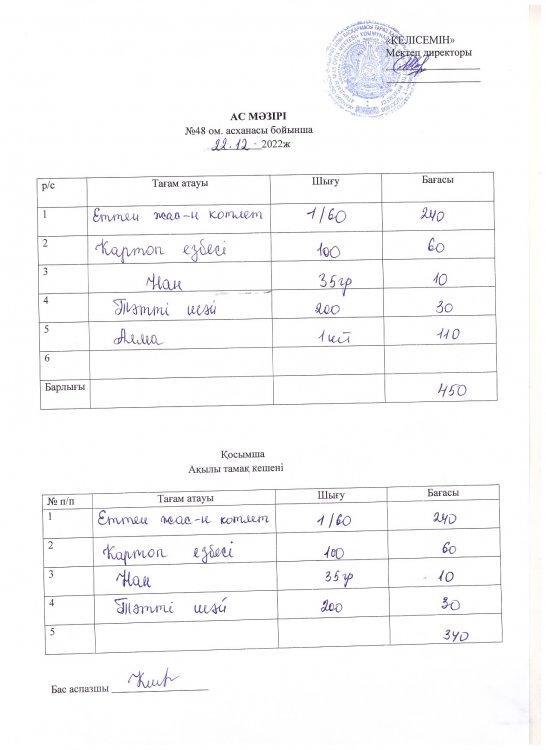 «КЕЛІСЕМІН»
Мектеп директоры
АС МӘЗІРІ
№48 ом. асханасы бойынша
22.12 2022ж
р/с Тағам атауы Шығу Бағасы
1 Еттен жас-н котлет 1/60 240
2 Картоп езбесі 100 60
3 Нан 35гр 10
4 Тәтті шәй 200 30
5 Алма 1кгі 110
6
Барлығы 450
Қосымша
Ақылы тамақ кешені
№ п/п Тағам атауы Шығу Бағасы
1 Еттен жас-н котлет 1/60 240
2 Картоп езбесі 100 60
3 Нан 35гр 10
4 Тәтті шәй 200 30
5 340
Бас аспазшы